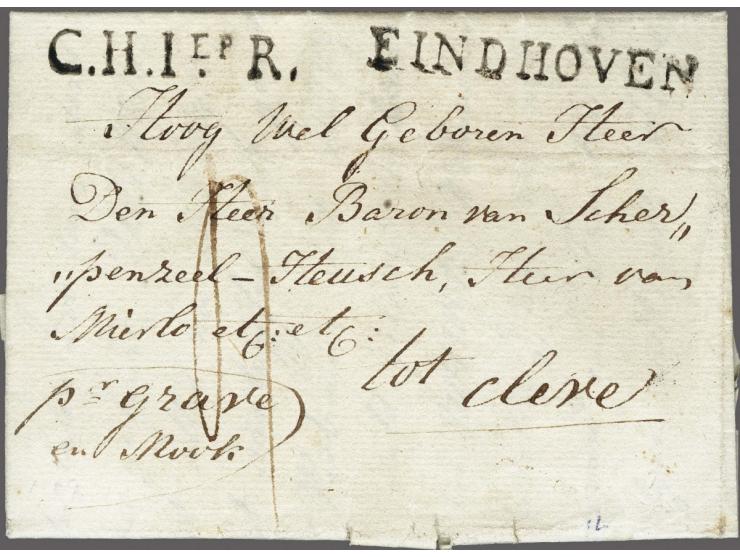 C.H.IER R. EINDHOVEN
Hoog Wel Geboren Heer
Den Heer Baron van Scher„
„penzeel - Heusch, Heer van
Mierlo etc: etc:
tot Cleve
pr grave
en Mook